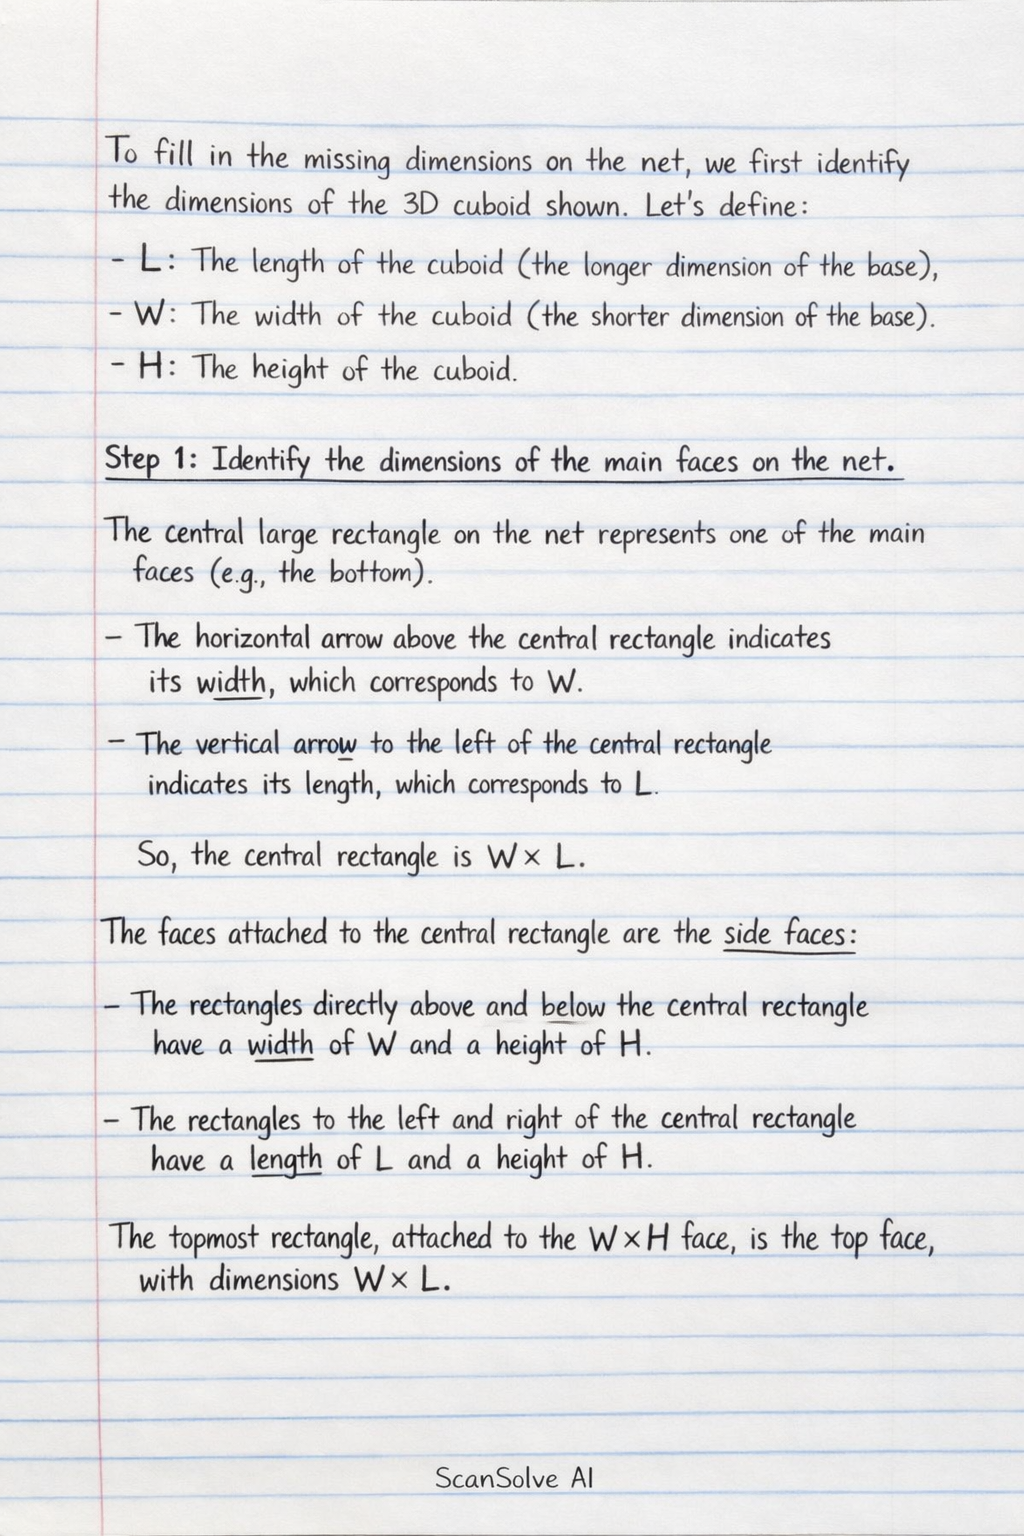 To fill in the missing dimensions on the net, we first identify
the dimensions of the 3D cuboid shown. Let's define:
- L: The length of the cuboid (the longer dimension of the base),
- W: The width of the cuboid (the shorter dimension of the base).
- H: The height of the cuboid.
Step 1: Identify the dimensions of the main faces on the net.
The central large rectangle on the net represents one of the main
faces (e.g., the bottom).
- The horizontal arrow above the central rectangle indicates
its width, which corresponds to W.
- The vertical arrow to the left of the central rectangle
indicates its length, which corresponds to L.
So, the central rectangle is W × L.
The faces attached to the central rectangle are the side faces:
- The rectangles directly above and below the central rectangle
have a width of W and a height of H.
- The rectangles to the left and right of the central rectangle
have a length of L and a height of H.
The topmost rectangle, attached to the W × H face, is the top face,
with dimensions W × L.
ScanSolve AI